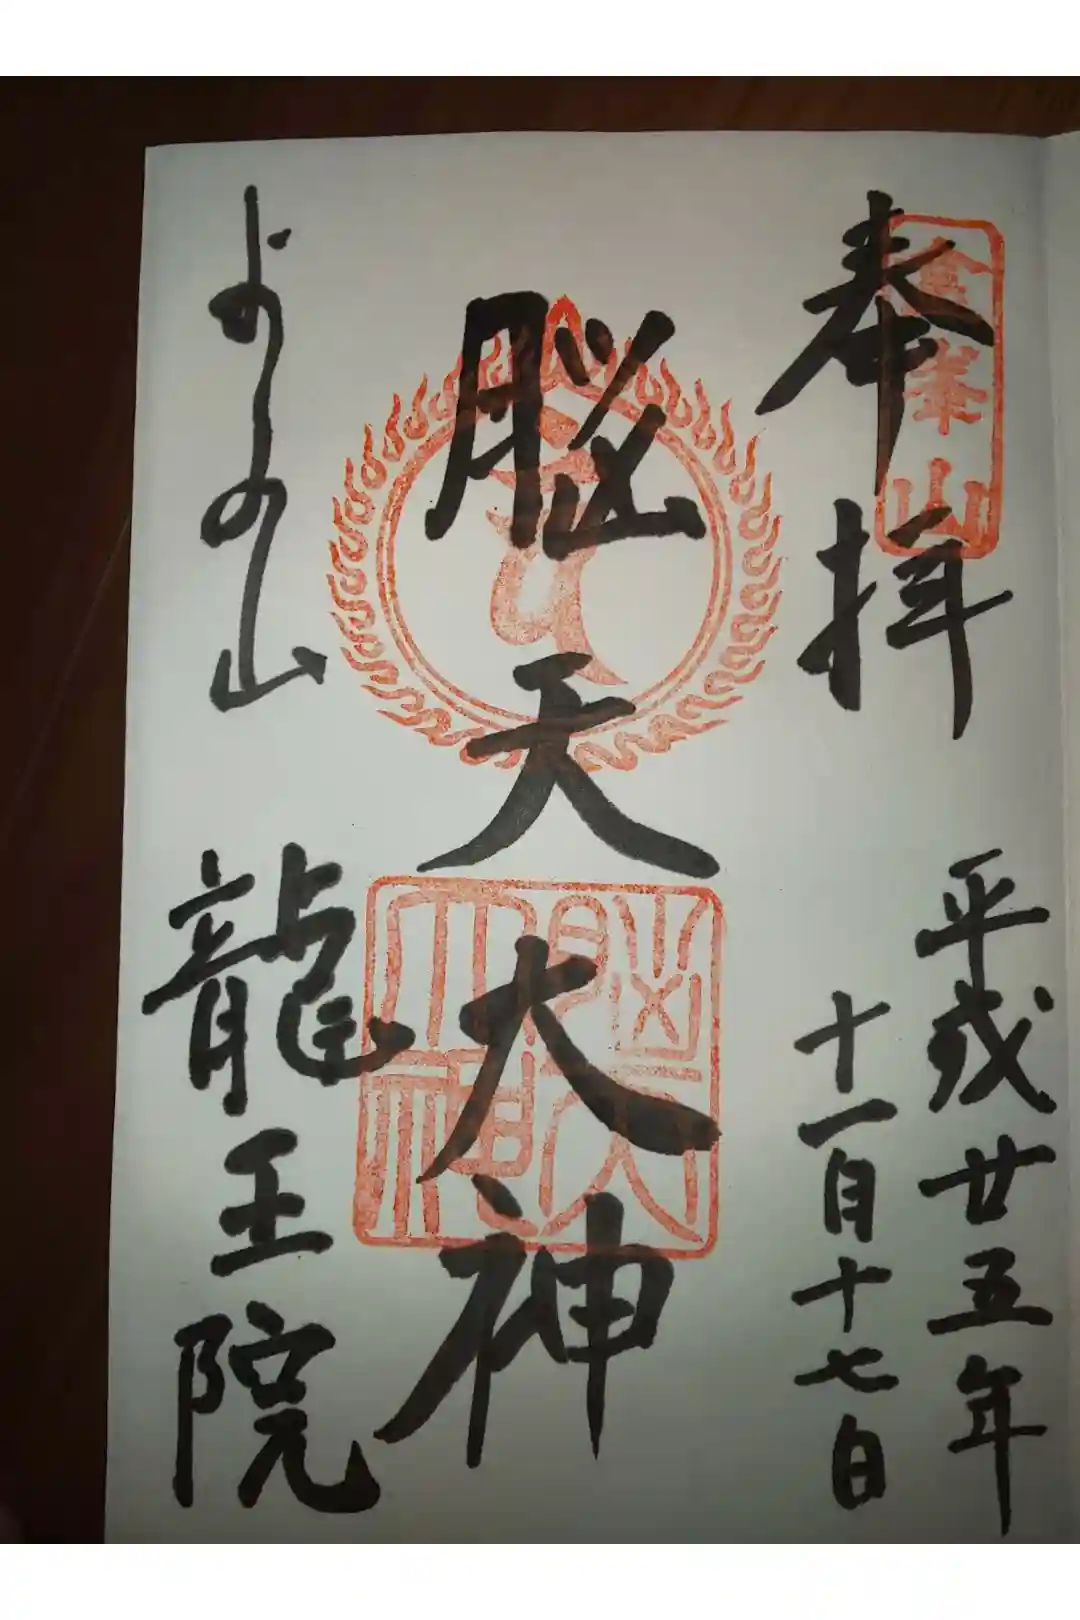 奉拝
金峯山
平成廿五年
十一月十七日
脳天大神
脳天大神
よしの山
龍王院